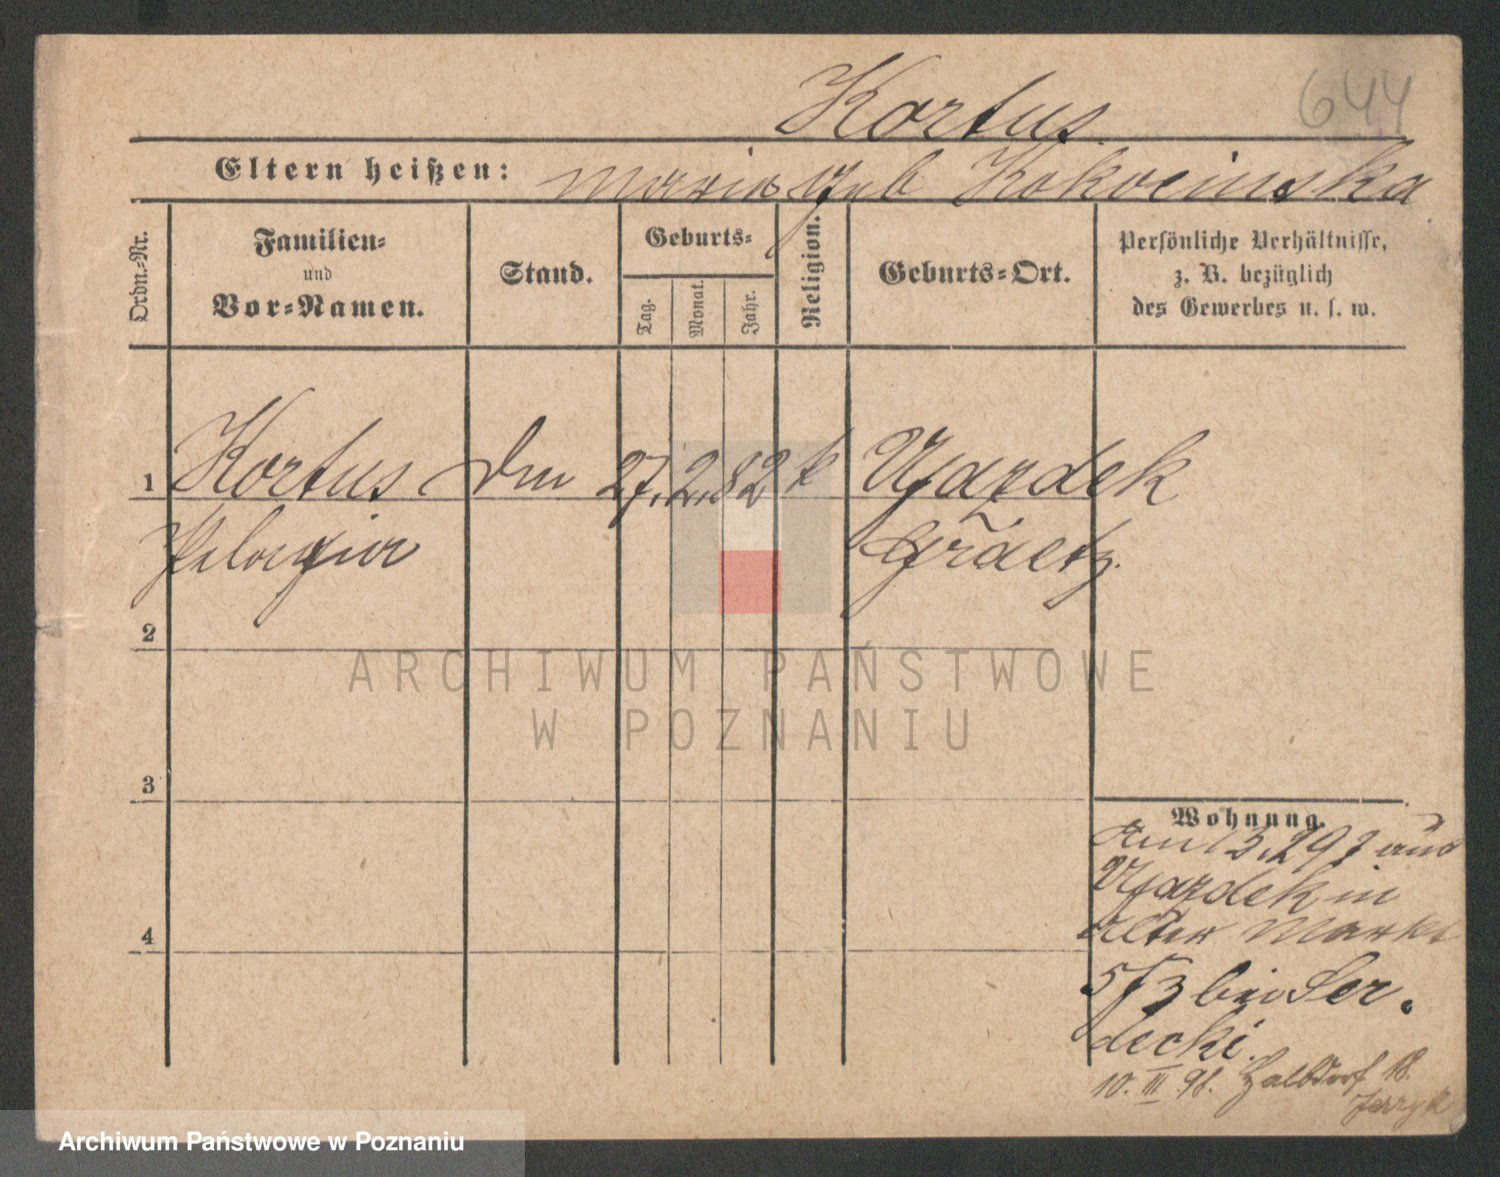 644
Kortus.
Eltern heißen: Maria geb Kokocinska
Ordn.-Nr.
Familien-
und
Vor-Namen.
Stand.
Geburts-
Tag.
Monat.
Jahr.
Religion.
Geburts-Ort.
Persönliche Verhältnisse,
z. B. bezüglich
des Gewerbes u. s. w.
1 Kortus Dm 27. 2. 82 k Ujazdek
Pelagia Grätz.
2
ARCHIWUM PAŃSTWOWE
W POZNANIU
3
Wohnung.
Am 13.2 97 aus
Ujazdek in
Alter Markt
57/3 bei Ser-
decki.
4
10. III 98. Halbdorf 18.
Jerzyk
Archiwum Państwowe w Poznaniu